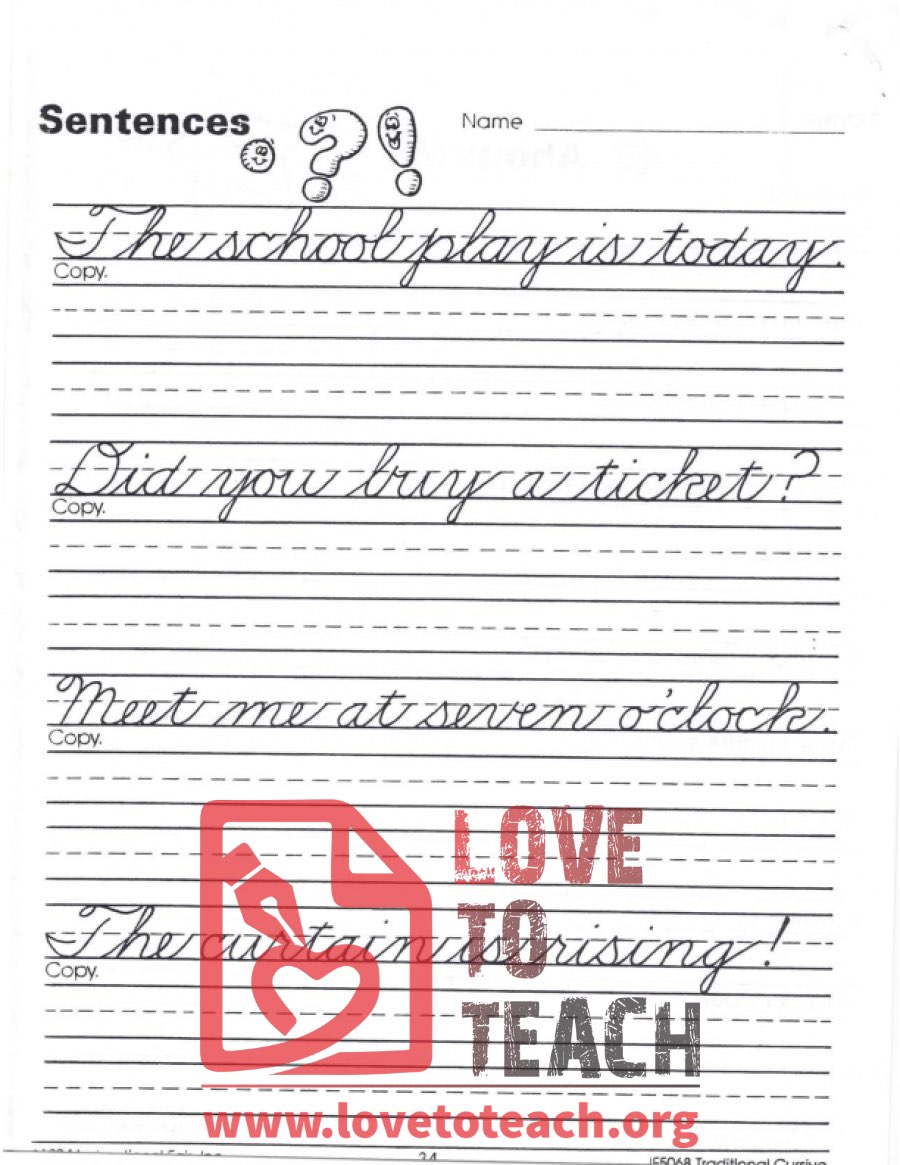 Sentences
Name
The school play is today.
Copy.
Did you buy a ticket?
Copy.
Meet me at seven o'clock.
Copy.
The curtain is rising!
Copy.
LOVE
TO
TEACH
www.lovetoteach.org
34
IF5068 Traditional Cursive